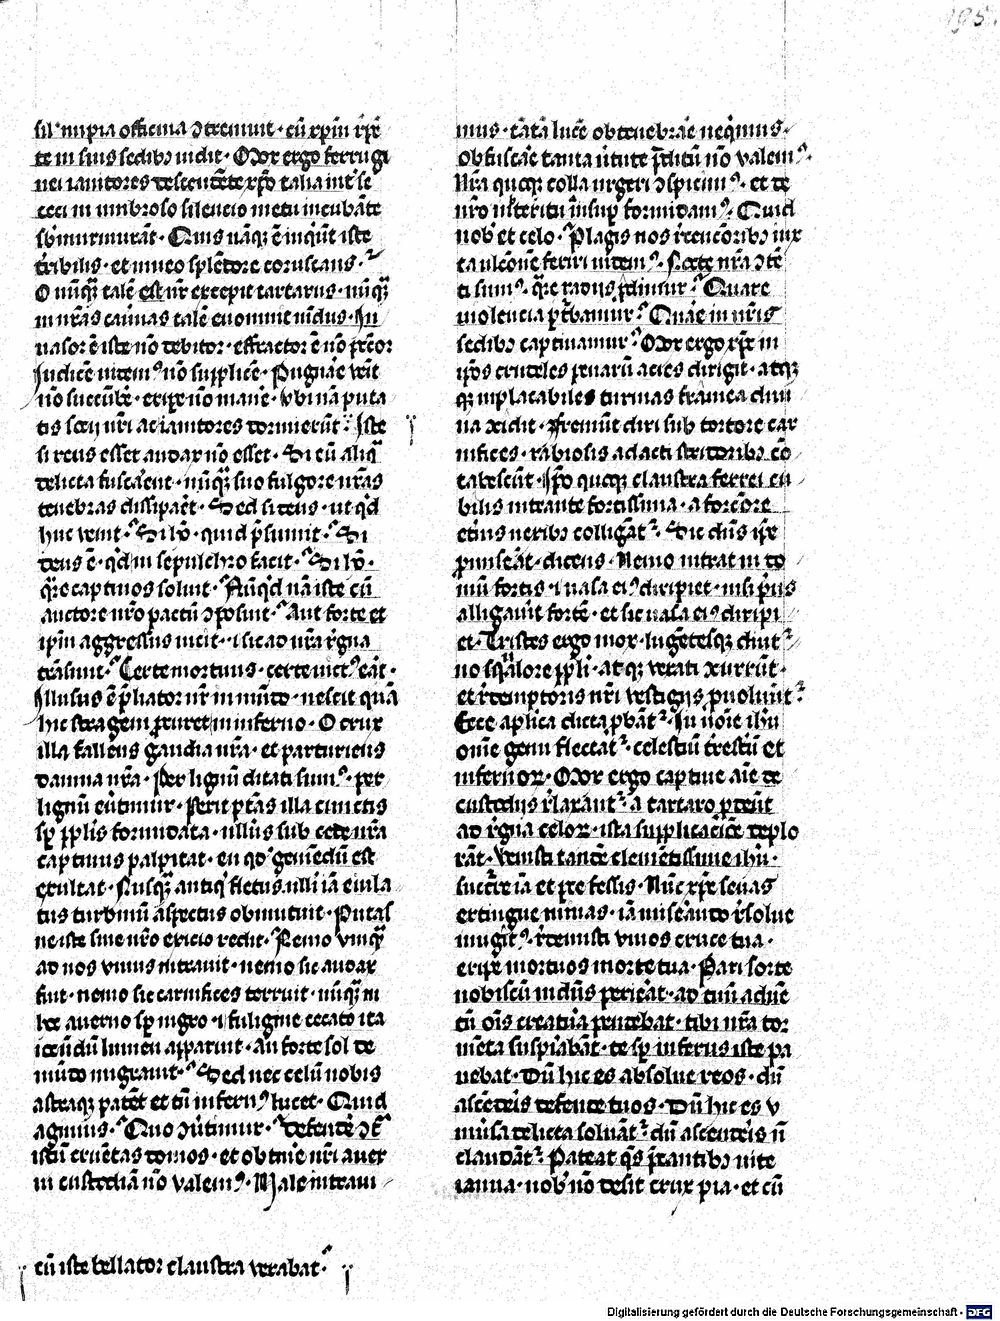 195.
sil impia officina ↄtremuit · cū xp̄m rp̄e
te in suis sedibꝫ uidit · Mox ergo ferrugi
nei ianitores descendēte xp̄o talia int̄ se
ceci in umbroso silencio metu incubāte
sb̄murmurāt · Quis nāqꝫ ē inquit iste
t̄ribilis · et niueo splēdore coruscans ·
O nūqꝫ talē est nr̄ excepit tartarus · nūqꝫ
in nr̄as cau̅nas talē euomuit mūdus · In
uasor ē iste nō debitor · effractor ē nō p̄cor
Judicē uidemꝰ nō supplicē · Pugnāe venit
nō succūbe · eripe nō mane · vbi nā puta
tis scȳ nr̄i ac ianitores dormierūt · Iste
si reus esset audax nō esset · Si eū aliq̄
delicta fuscāent · nūqꝫ suo fulgore nr̄as
tenebras dissipāet · Sed si deus · ut qd
huc venit · Si hō · quid p̄sumit · Si
deus ē · qd in sepulchro facit · Si hō ·
q̄re captiuos soluit · Nūqd nā iste cū
auctore nr̄o pactū ↄposuit · Aut forte et
ip̄m aggressus uicit · i sic ad nr̄a r̄gna
trāsiuit · Certe mortuus · certe uictꝰ eāt ·
Illusus ē p̄liator nr̄ in mūdo · nesciit quā
hic stragem ꝓcuret in inferno · O crux
illa fallens gaudia nr̄a · et parturiens
damna nr̄a · Per lignū ditati sumꝰ · per
lignū eu̅timur · Perit p̄tās illa cunctis
sꝑ ppl̄is formidata · nullus sub cede nr̄a
captiuus palpitat · en qd gemēdū est
exultat · Nusqꝫ antiq fletus ulli iā eiula
tus turbinū aspectus obmutuit · Putas
ne iste sine nr̄o exicio redit · Nemo vnqꝫ
ad nos viuus intrauit · nemo sic audax
fuit · nemo sic carnifices terruit · nūqꝫ in
hoc auerno sꝑ nigro · i fuligine cecato ita
icūdū lumen apparuit · An forte sol de
mūdo migrauit · Sed nec celū nobis
astraqꝫ patēt et tn̄ infernꝰ lucet · Quid
agimus · Quo ↄu̅timur · defende ↄt̄
istū cruētas domos · et obtine nr̄i auer
ni custodiā nō valemꝰ · Male intraui
cū iste bellator claustra verabat ·
mus · tātā lucē obtenebrāe neqiuimus ·
Obfuscāe tanta u̅tute p̄ditū nō valemꝰ ·
Nr̄a quoqꝫ colla urgeri ↄspicimꝰ · et de
nr̄o int̄eritu insuꝑ formidamꝰ · Quid
nob̄ et celo · Plagis nos r̄cencoribꝫ iux
ta ulcōne feriri uidemꝰ · Sorte nr̄a ↄtē
ti sumꝰ · q̄re radiis ꝑdimur · Quare
violencia ꝑt̄bamur · Quāe in nr̄is
sedibꝫ captiuamur · Mox ergo xp̄c in
ip̄os crudeles penarū acies dirigit · atqꝫ
qꝫ inplacabiles turmas framea diui
na cidit · Fremūt diri sub tortore car
nifices · rabiosis adacti stridoribꝫ cō
tabescūt · Ip̄o quoqꝫ claustra ferrei cu
bilis intrante fortissima · a forciore
eciꝰ neribꝫ colligātꝰ · Sic dn̄s ip̄e
ꝓmiserat · dicens · Nemo intrat in do
mū fortis · i uasa eiꝰ diripiet · nisi p̄us
alligauit fortē · et sic uasa eiꝰ diripi
et · Tristes ergo mox · lugētesqꝫ diut
no sqalore ppl̄i · atqꝫ
et r̄demptoris nr̄i vestigiis ꝓuoluūtꝰ ·
Ecce aplica dicta ꝓbātꝰ · In noīe ihū
om̄e genu flectatꝰ · celestiū t̄restiū et
infernoꝝ · Mox ergo captiue aīe de
custodiis r̄laxantꝰ a tartaro ꝓdeūt
ad r̄gna celoꝝ · ista supplicacione deplo
rāt · Venisti tandē clemētissime ihū ·
succr̄re iā et p̄re fessis · Nūc xp̄e seuas
extingue minas · iā miserando r̄solue
mugitꝰ · r̄demisti viuos cruce tua ·
eripe mortuos morte tua · Pari sorte
nobiscū indiis perierat · ad tuū aduē
tū om̄is creatura pendebat · tibi nr̄a tor
mēta suspirabāt · te sꝑ infernus iste pa
uebat · Dū hic es absolue reos · dū
ascēderis defende tuos · Dū hic es v
niu̅sa delicta soluātꝰ · dū ascenderis nō
claudātꝰ · Pateat qs̄ p̄cantibꝫ uite
ianua · nob̄ nō desit crux pia · et cū
Digitalisierung gefördert durch die Deutsche Forschungsgemeinschaft - DFG